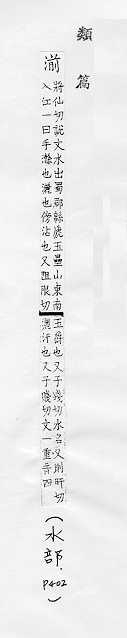 類篇
湔
將仙切說文水出蜀郡緜虒玉壘山東南
入江一曰手澣也灑也傍沾也又阻限切
玉爵也又子淺切水名又則旰切
汙也又子賤切文一重音四
(水部. P402)